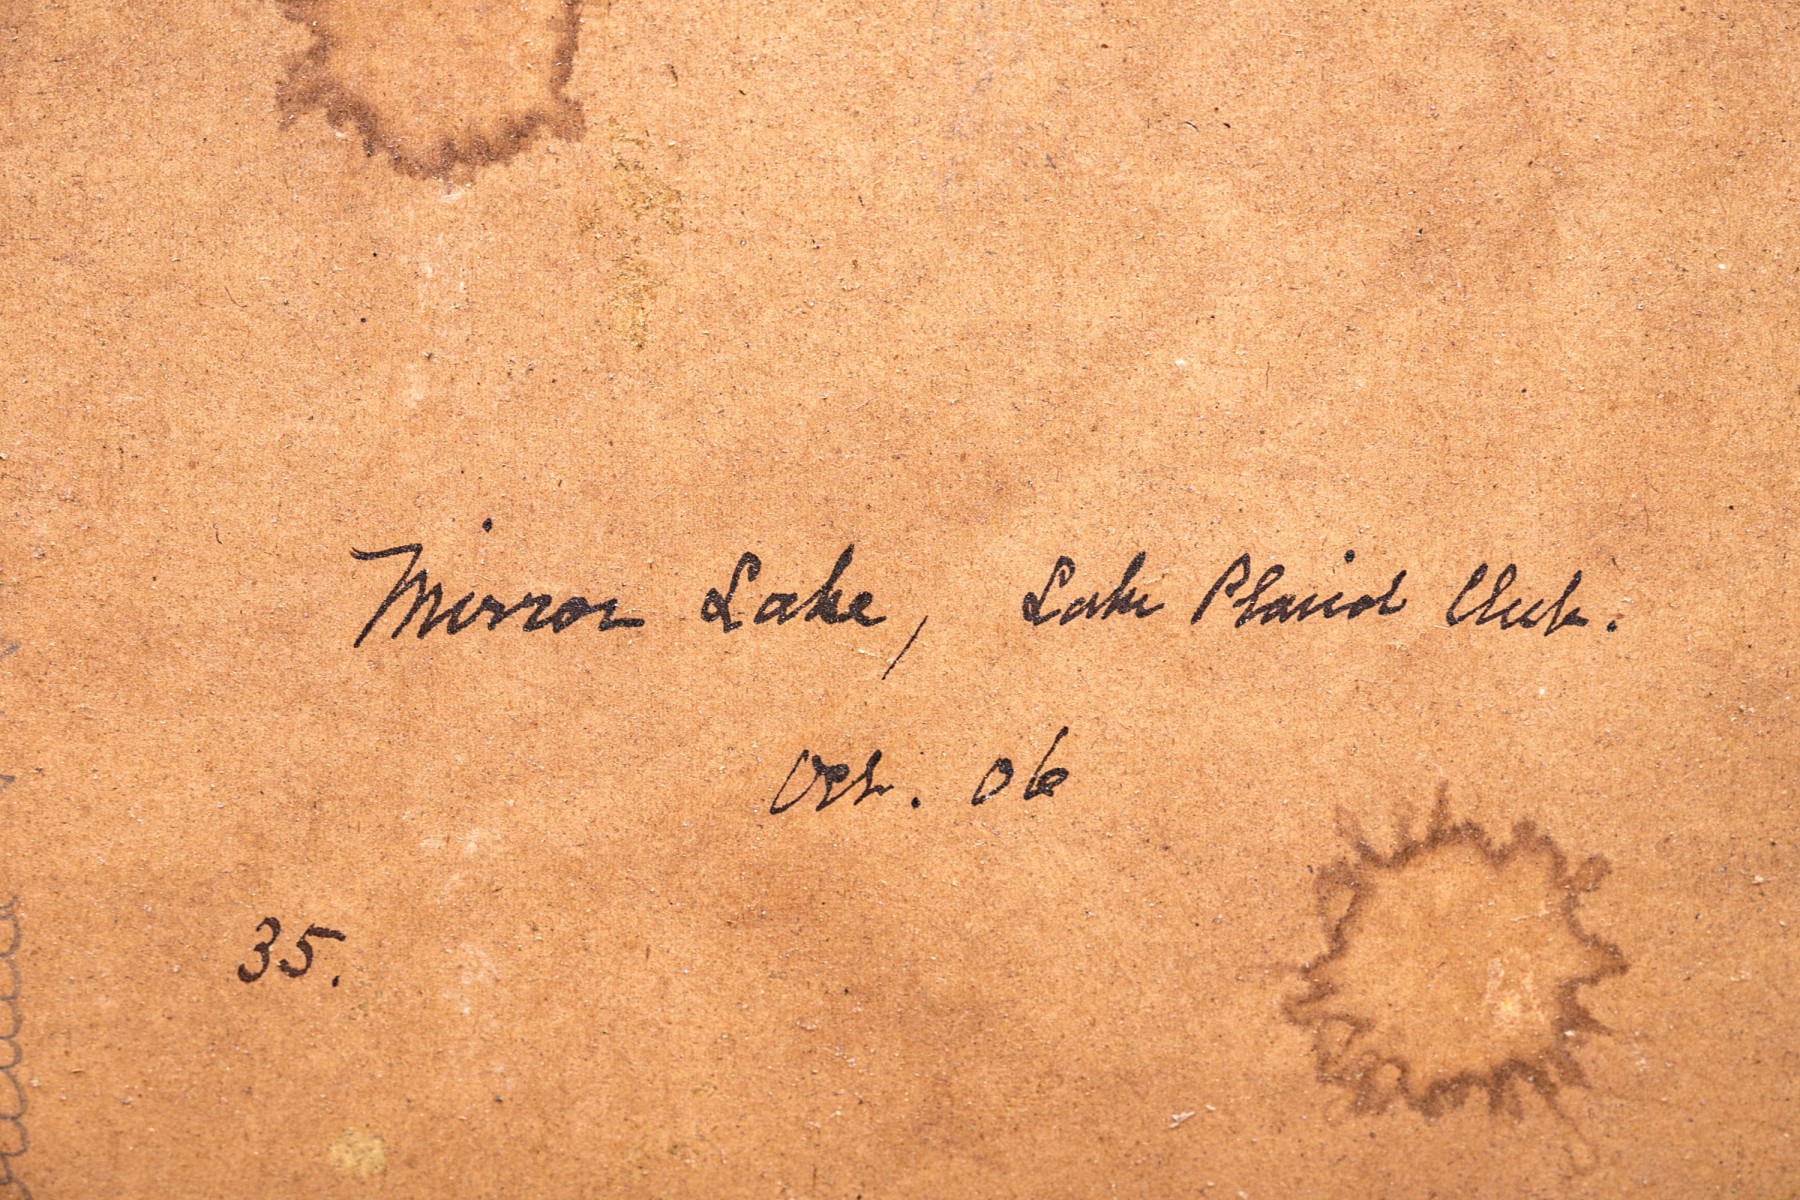 Mirror Lake, Lake Placid Club.
Oct. 06
35.